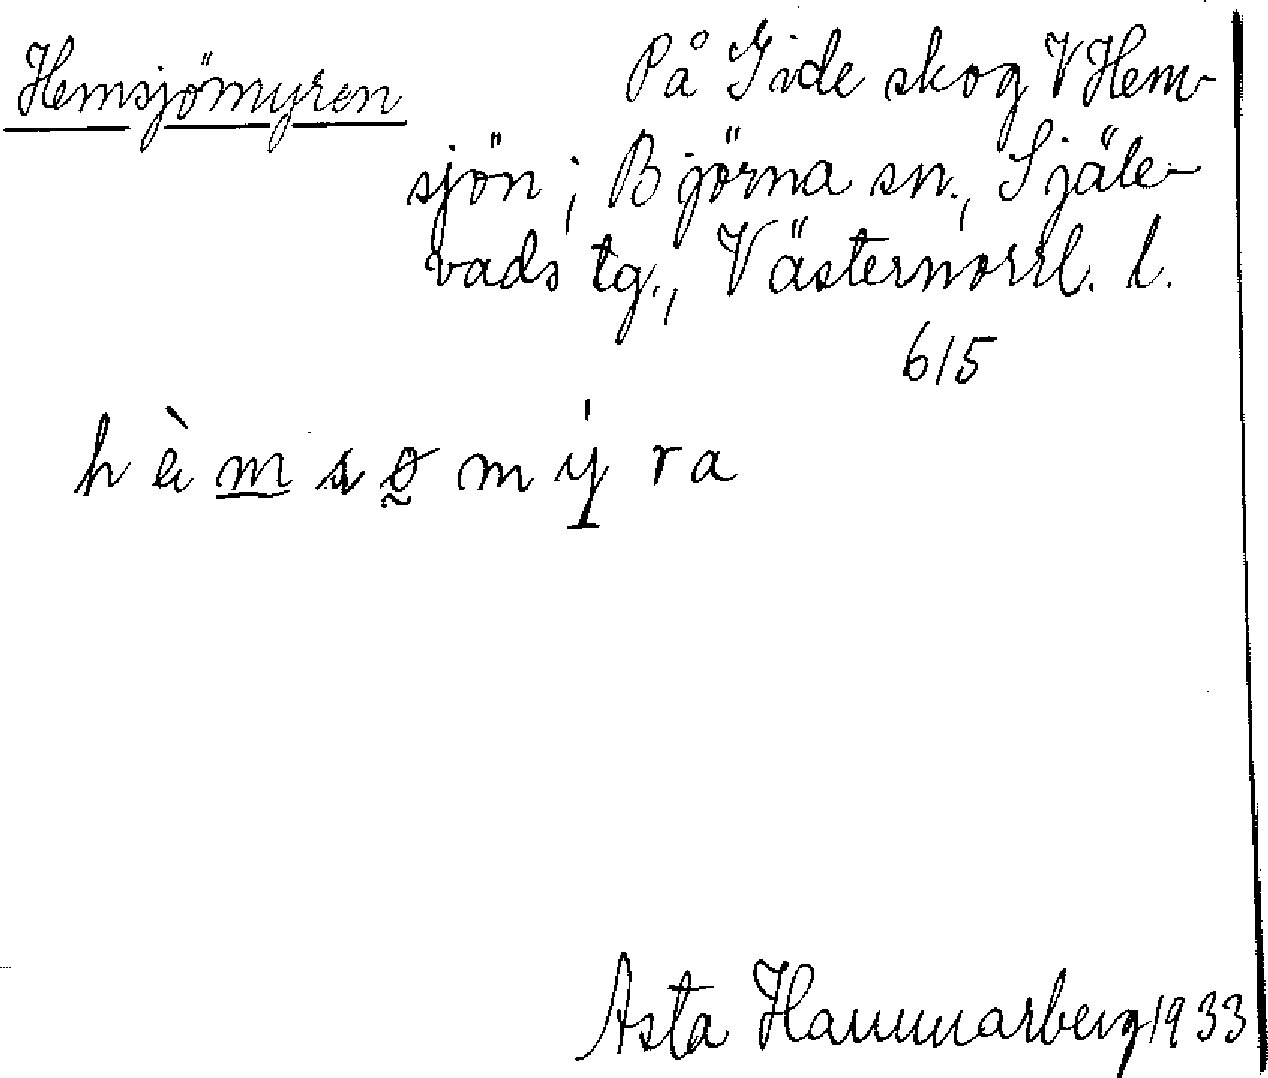 Hemsjömyren
På Gide skog V Hem-
sjön; Björna sn., Själe-
vads tg., Västernorrl. l.
615
Asta Hammarberg 1933